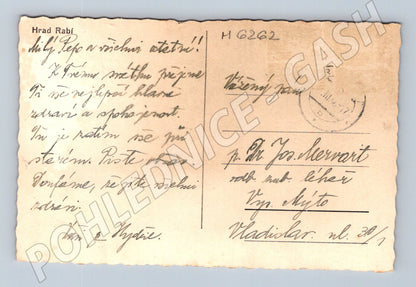 Hrad Rabí
H 6262
Milý Pepo a všichni ostatní!!
K Tvému svátku přejeme
Ti vše nejlepší hlavně
zdraví a spokojenost.
My je zatím vše při
starém. Pište
Doufáme, že jste všichni
zdrávi.
Vážený pan
p. Dr Jos. Mervart
odb. zub. lékař
Vys. Mýto
Vladislav. ul. 30/I
POHLEDNICE - GASH